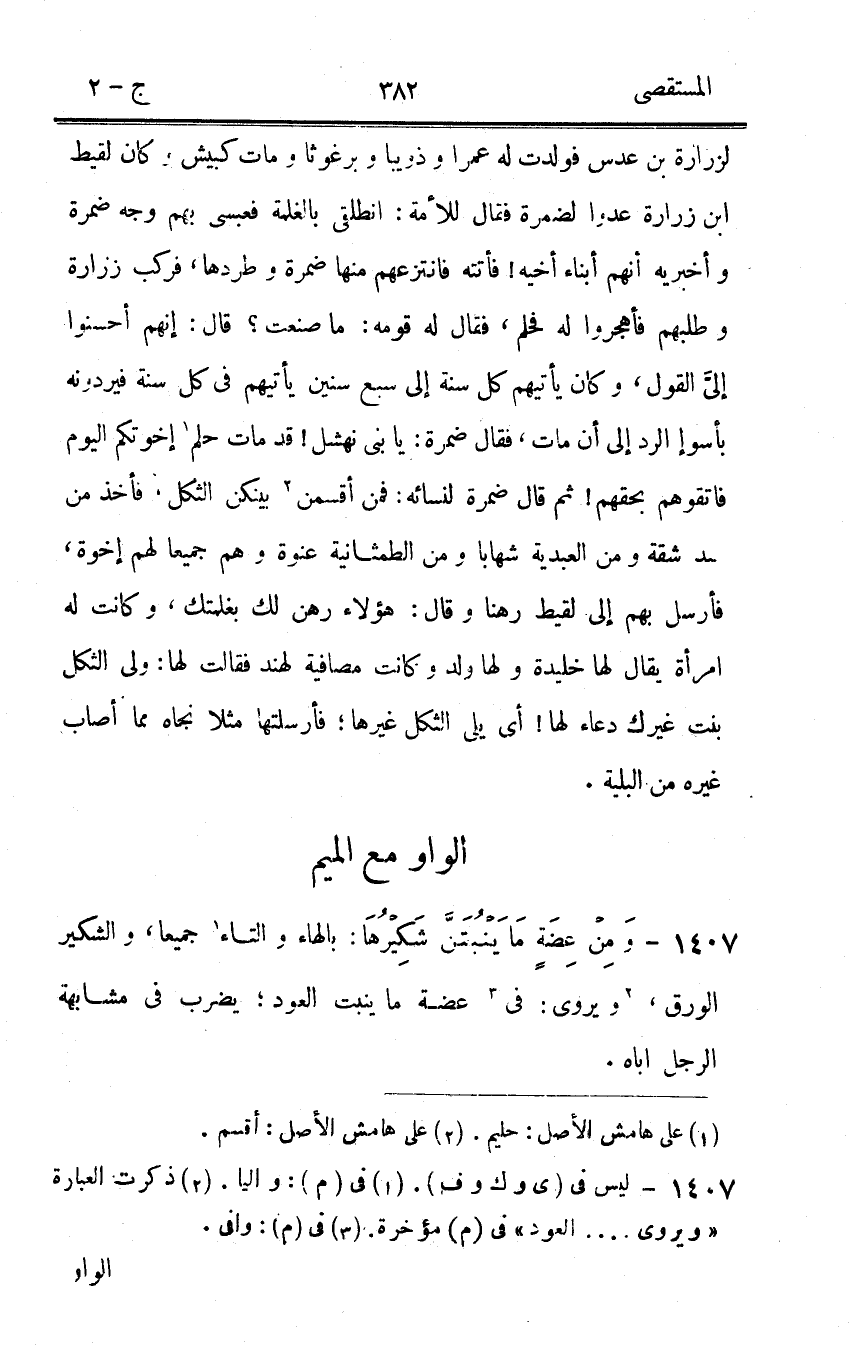 المستقصى ٣٨٢ ج - ٢
لزرارة بن عدس فولدت له عمرا و ذويبا و برغوثا و مات كبيش و كان لقيط
ابن زرارة عدوا لضمرة فقال للأمة : انطلقى بالغلمة فعبسى بهم وجه ضمرة
و أخبريه أنهم أبناء أخيه ! فأتته فانتزعهم منها ضمرة و طردها ، فركب زرارة
و طلبهم فأهجروا له فحلم ، فقال له قومه : ما صنعت ؟ قال : إنهم أحسنوا
إلىَّ القول ، و كان يأتيهم كل سنة إلى سبع سنين يأتيهم فى كل سنة فيردونه
بأسوإ الرد إلى أن مات ، فقال ضمرة : يا بنى نهشل ! قد مات حلم ١ إخوتكم اليوم
فاتقوهم بحقهم ! ثم قال ضمرة لنسائه : فمن أقسمن ٢ بينكن الثكل . فأخذ من
شقة و من العبدية شهابا و من الطمثانية عنوة و هم جميعا لهم إخوة ،
فأرسل بهم إلى لقيط رهنا و قال : هؤلاء رهن لك بغلمتك ، و كانت له
امرأة يقال لها خليدة و لها ولد و كانت مصافية لهند فقالت لها : ولى الثكل
بنت غيرك دعاء لها ! أى يلى الثكل غيرها ؛ فأرسلتها مثلا نجاه مما أصاب
غيره من البلية .
الواو مع الميم
١٤٠٧ - وَ مِنْ عِضَةٍ مَا يَنْبُتَنَّ شَكِيْرُهَا : بالهاء و التاء ١ جميعا ، و الشكير
الورق ، ٢ و يروى : فى ٣ عضة ما ينبت العود ؛ يضرب فى مشابهة
الرجل اباه .
(١) على هامش الأصل : حليم . (٢) على هامش الأصل : أقسم .
١٤٠٧ - ليس فى (ى و ك و ف) . (١) فى (م) : و اليا . (٢) ذكرت العبارة
« ويروى .... العود » فى (م) مؤخرة . (٣) فى (م) : وافى .
الواو